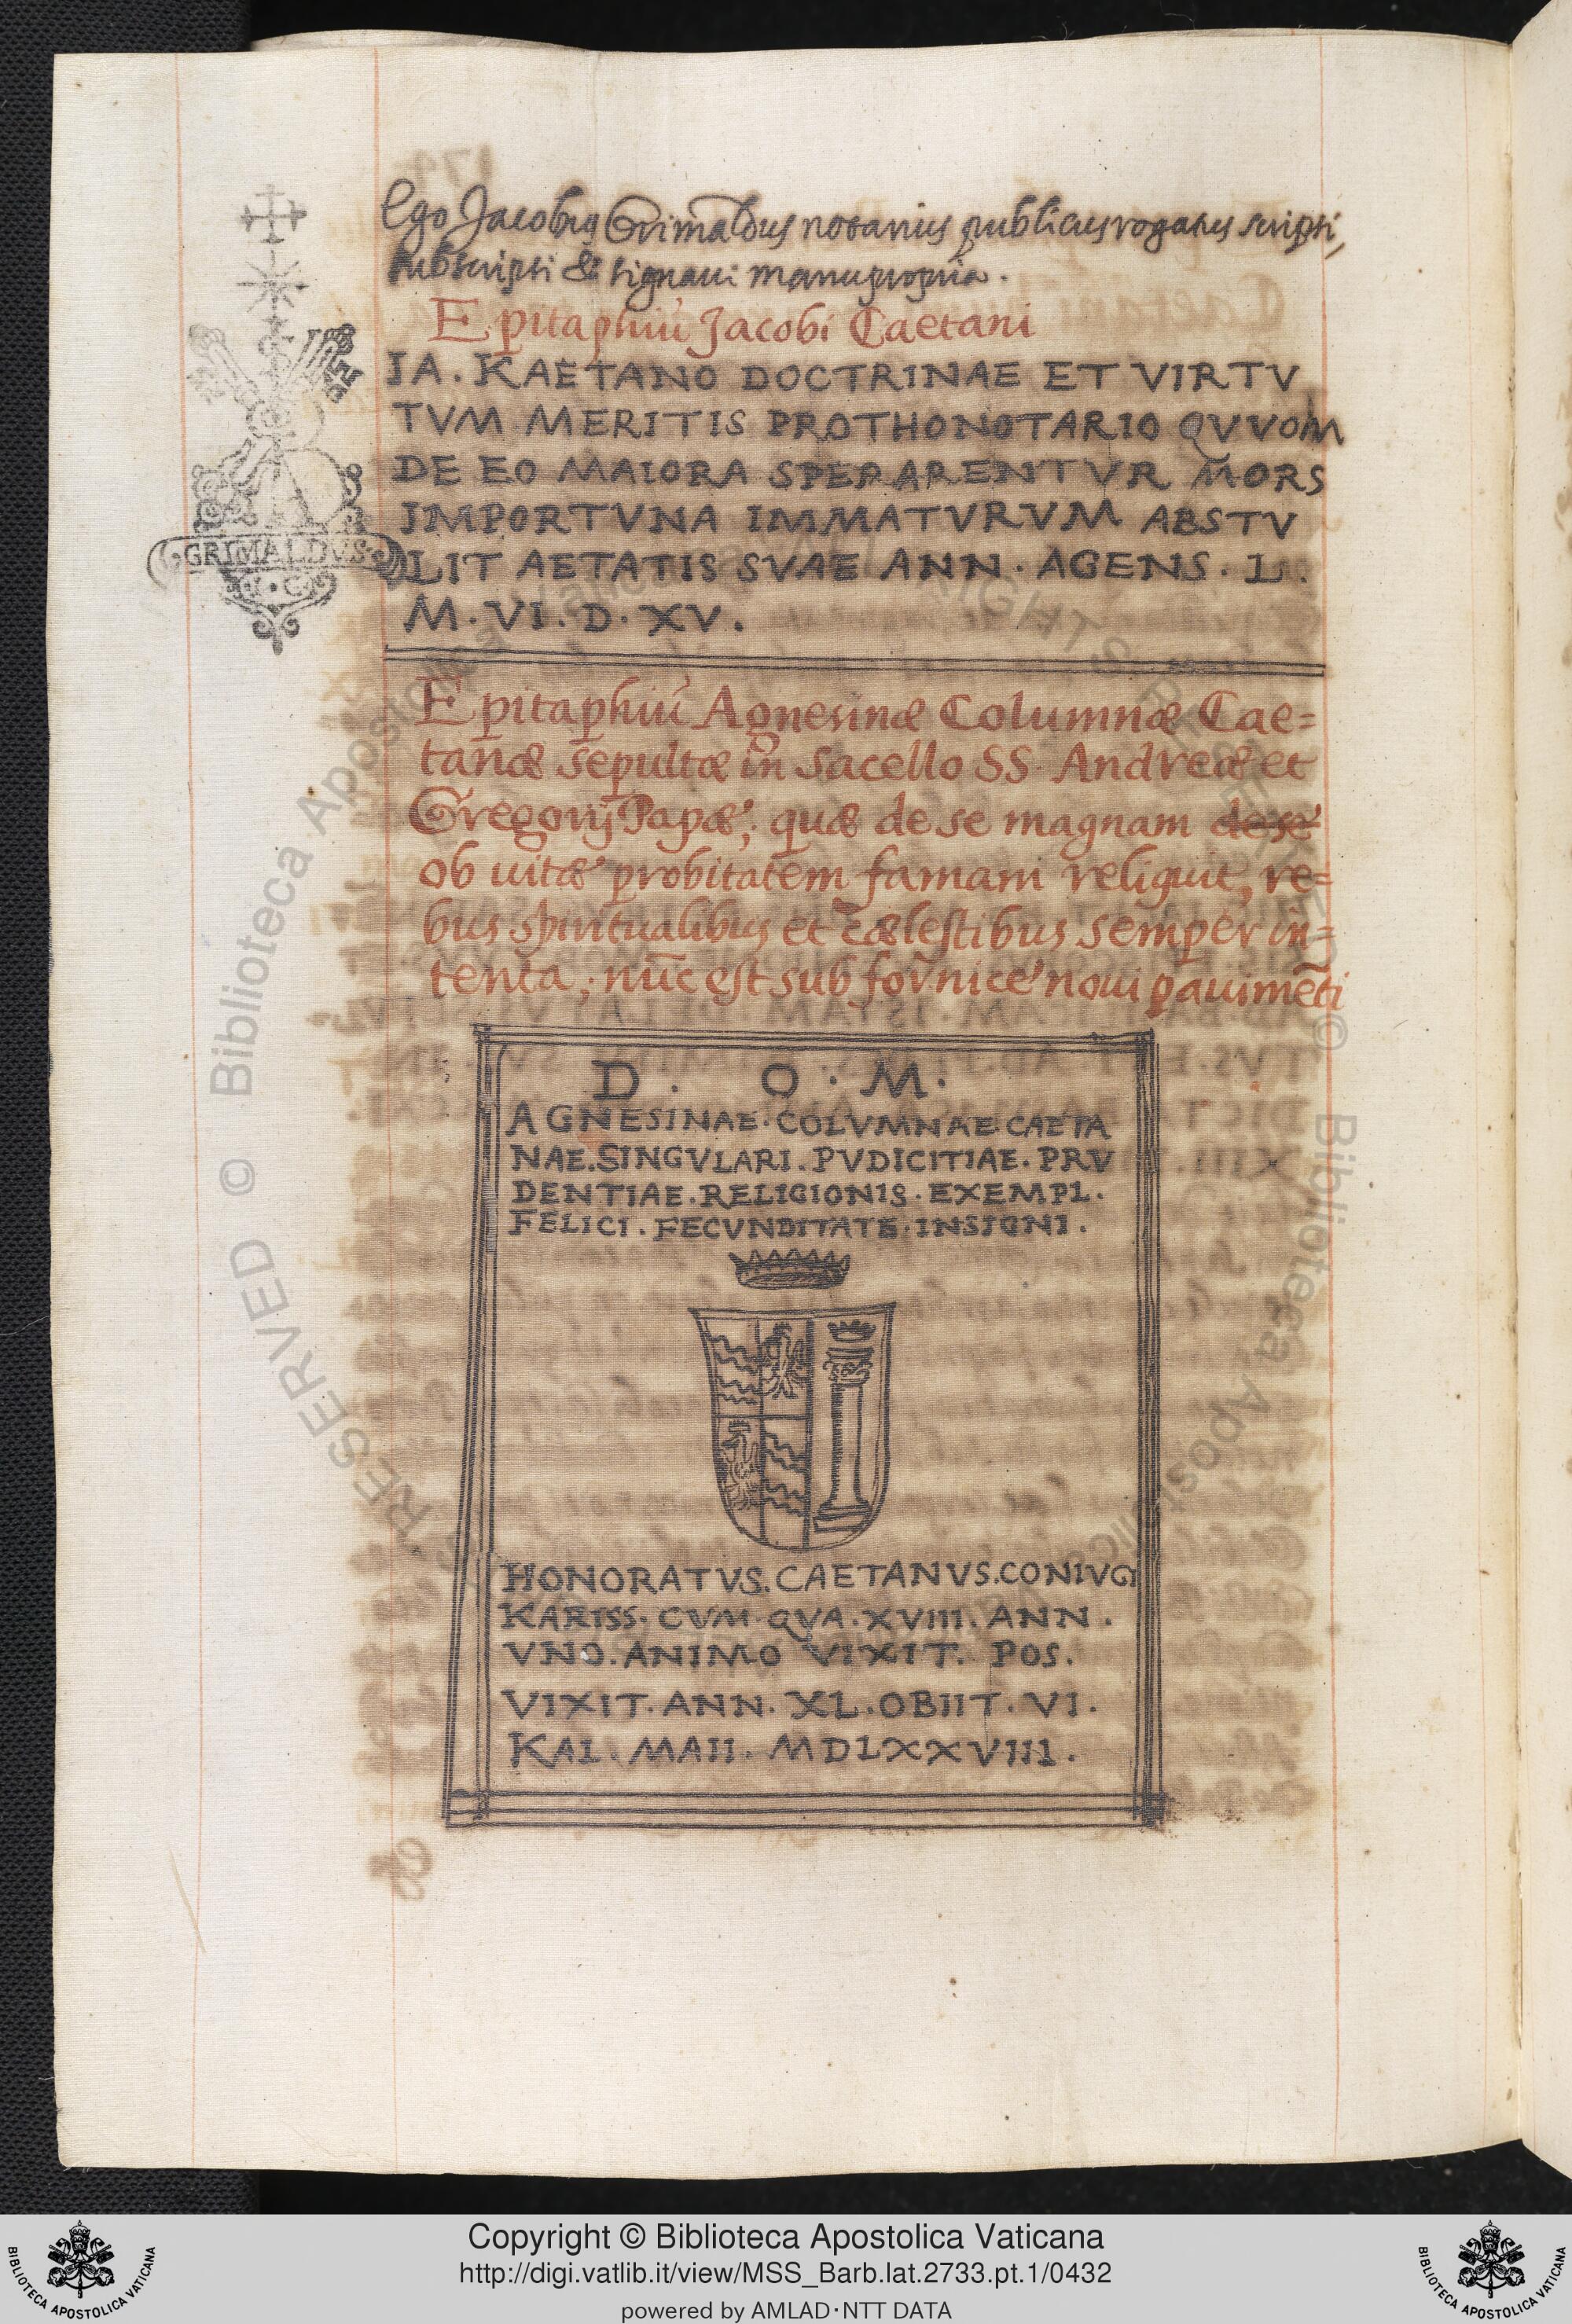 Ego Jacobus Grimaldus notarius publicus rogatus scripsi,
subscripsi & signavi manu propria.
Epitaphiũ Jacobi Caetani
IA. KAETANO DOCTRINAE ET VIRTV
TVM MERITIS PROTHONOTARIO QVVOM
DE EO MAIORA SPERARENTVR MORS
IMPORTVNA IMMATVRVM ABSTV
LIT AETATIS SVAE ANN. AGENS. L.
M. VI. D. XV.
GRIMALDVS
Epitaphiũ Agnesinæ Columnæ Cae=
tanæ sepultæ in sacello SS. Andreæ et
Gregorij Papæ; quæ de se magnam de se
ob uitæ probitatem famam reliquit, re=
bus spiritualibus et cælestibus semper in=
tenta; nũc est sub fornice noui pauimẽti
D. O. M.
AGNESINAE. COLVMNAE. CAETA
NAE. SINGVLARI. PVDICITIAE. PRV
DENTIAE. RELIGIONIS. EXEMPL.
FELICI. FECVNDITATE. INSIGNI.
HONORATVS. CAETANVS. CONIVGI
KARISS. CVM. QVA. XVIII. ANN.
VNO. ANIMO VIXIT. POS.
VIXIT. ANN. XL. OBIIT. VI.
KAL. MAII. MDLXXVIII.
Copyright © Biblioteca Apostolica Vaticana
http://digi.vatlib.it/view/MSS_Barb.lat.2733.pt.1/0432
powered by AMLAD·NTT DATA
BIBLIOTECA APOSTOLICA VATICANA
BIBLIOTECA APOSTOLICA VATICANA